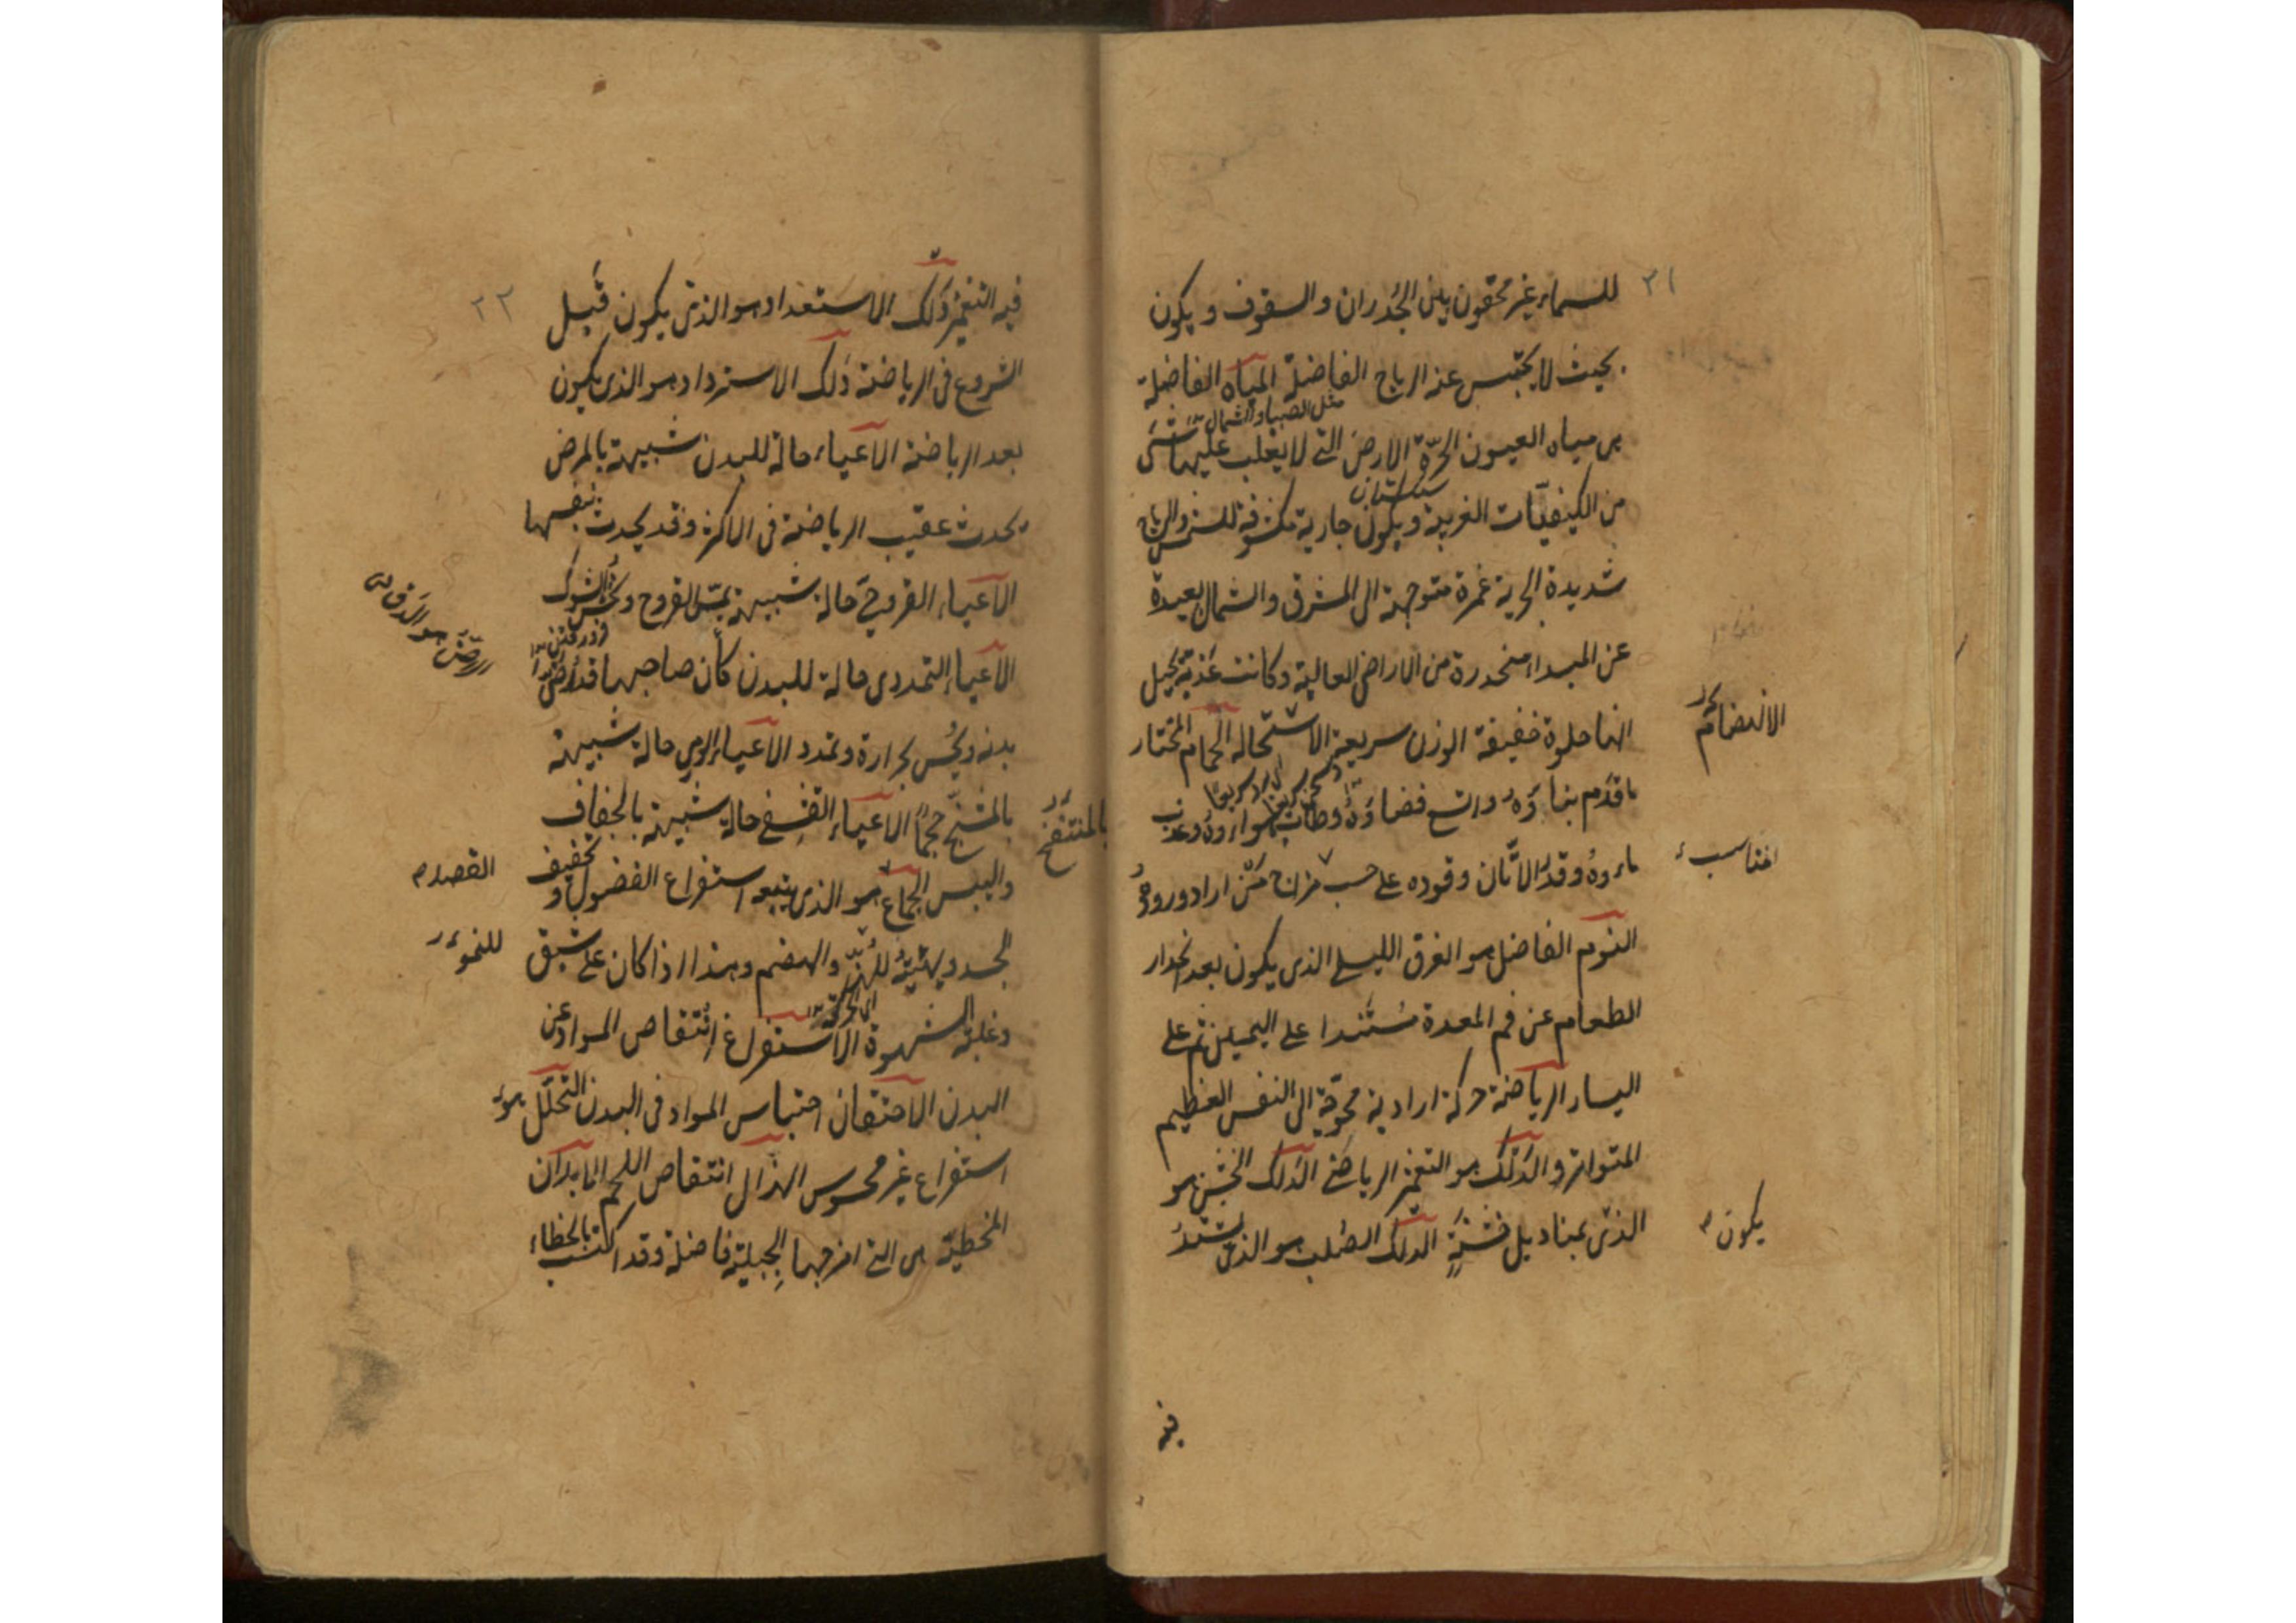 ٢١
للسماء غير محقون بين الجُدران والسقوف ويكون
بحيث لا يحتبس عنه الرياح الفاضلة المياه الفاضلة
مثل الصبا والشمال
هى مياه العيون الحرّة الارض التى لا يغلب عليها شئ
سنكستان
من الكيفيّات الغريبة ويكون جارية مكشوفة للشمس والرياح
شديدة الجرية غمرة متوجهة الى المشرق والشمال بعيدة
عن المبداء منحدرة من الاراضى العالية وكانت عذبة يخيل
انها حلوة خفيفة الوزن سريعة الاستحالة الحمام المختار
الانهضام
ما قدم بناؤه واتسع فضاؤه وطاب هواؤه وعذب
ماءوه وقدّر الاتّان وقوده على حسب مزاج مَن اراد وروده
النوم الفاضل هو الغرق الليلى الذى يكون بعد انحدار
الطعام عن فم المعدة مُستندا على اليمين ثم على
اليسار الرياضة حركة ارادية محوّجة الى النفس العظيم
المتواتر والدلك هو التغمز الرياضى الدلك الخشن هو
الذى بمناديل خشنةٍ الدلك الصُلب هو الذى يشتدُّ
يكون
فيه
٢٢
فيه التغمز دلك الاستعداد هو الذى يكون قبيل
الشروع فى الرياضة دلك الاسترداد هو الذى يكون
بعد الرياضة الاعياء حالة للبدن شبيهة بالمرض
تحدث عقيب الرياضة فى الاكثر وقد يحدث بنفسها
الاعياء القروحى حالة شبيهة بمسّ القروح ونخس الشوك
الاعياء التمددى حالة للبدن كأن صاحبها قد رُضّ
بدنه ويُحس بحرارة وتمدد الاعياء الورمى حالة شبيهة
بالمنتفخ
بالمتشنج حجمًا الاعياء القشفى حالة شبيهة بالجفاف
واليبس الجماع هو الذى يتبعه استفراغ الفضول و تخفيف
القصد
الجسد ويهيّئه للنمو والهضم وهذا اذا كان على شبق
للنمو
وغلبة الشهوة الاستفراغ انتقاص المواد عن
اى الحركة
البدن الاحتقان احتباس المواد فى البدن التحلّل هو
استفراغ غير محسوس الهزال انتقاص اللحم الابدان
المخطيّة هى التى امزجها الجبليّة فاضلة وقد اكتسب بالخطاء